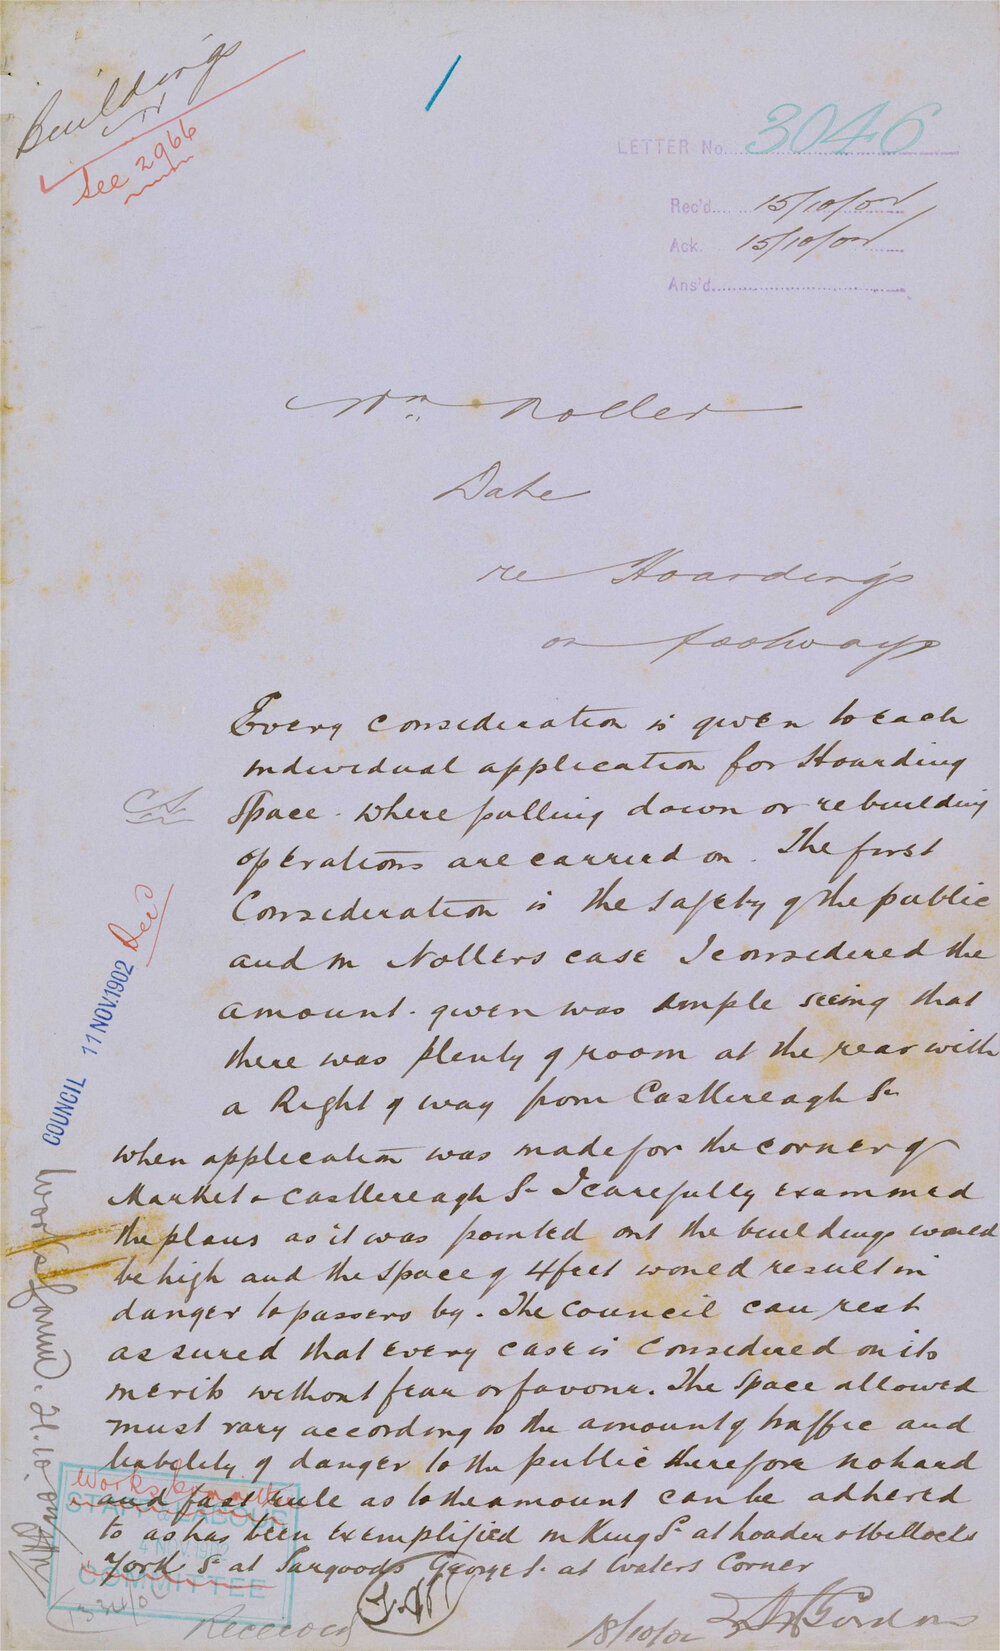 Buildings
See 2966
1
LETTER No. 3046
Rec'd. 15/10/02
Ack. 15/10/02
Ans'd.
Wm Noller
Date
re Hoardings
on footways
Every consideration is given to each
individual application for Hoarding
Space. where pulling down or rebuilding
operations are carried on. The first
Consideration is the safety of the public
and in Nollers case I considered the
amount. given was ample seeing that
there was plenty of room at the rear with
a Right of way from Castlereagh St
when application was made for the corner of
Market & Castlereagh St I carefully examined
the plans as it was pointed out the buildings would
be high and the space of 4 feet would result in
danger to passers by. The Council can rest
assured that every case is considered on its
merits without fear or favour. The Space allowed
must vary according to the amount of traffic and
liability of danger to the public therefore no hard
and fast rule as to the amount can be adhered
to as has been exemplified in King St at
York St at Sargoods George St at Waters Corner
18/10/02
Received
COUNCIL 11 NOV. 1902
Works
COMMITTEE